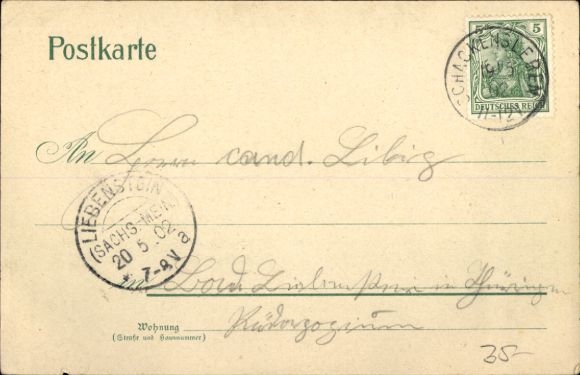 Postkarte
5 5
SCHACKENSLEBEN
19/5
02
11-12V
DEUTSCHES REICH
An Herrn cand. Libig
LIEBENSTEIN
(SACHS.-MEIN.)
20 5.02
* 7-8V a
in Bad Liebenstein in Thüringen
Wohnung
(Straße und Hausnummer)
35-